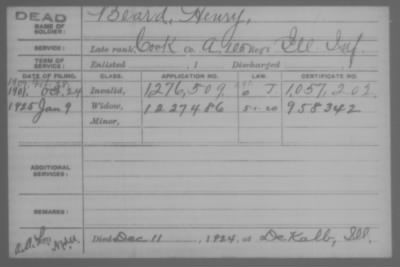 DEAD
NAME OF SOLDIER: Beard, Henry,
SERVICE: Late rank, Cook Co. A, 205 Reg't Ill Inf.
TERM OF SERVICE: Enlisted , 1 Discharged
DATE OF FILING. CLASS. APPLICATION NO. LAW. CERTIFICATE NO.
1901. Oct. 24 Invalid, 1276,509. J 1,057,202.
1925 Jan 9 Widow, 1227486 958342
Minor,
ADDITIONAL SERVICES:
REMARKS:
Died Dec 11, 1924, at DeKalb, Ill.